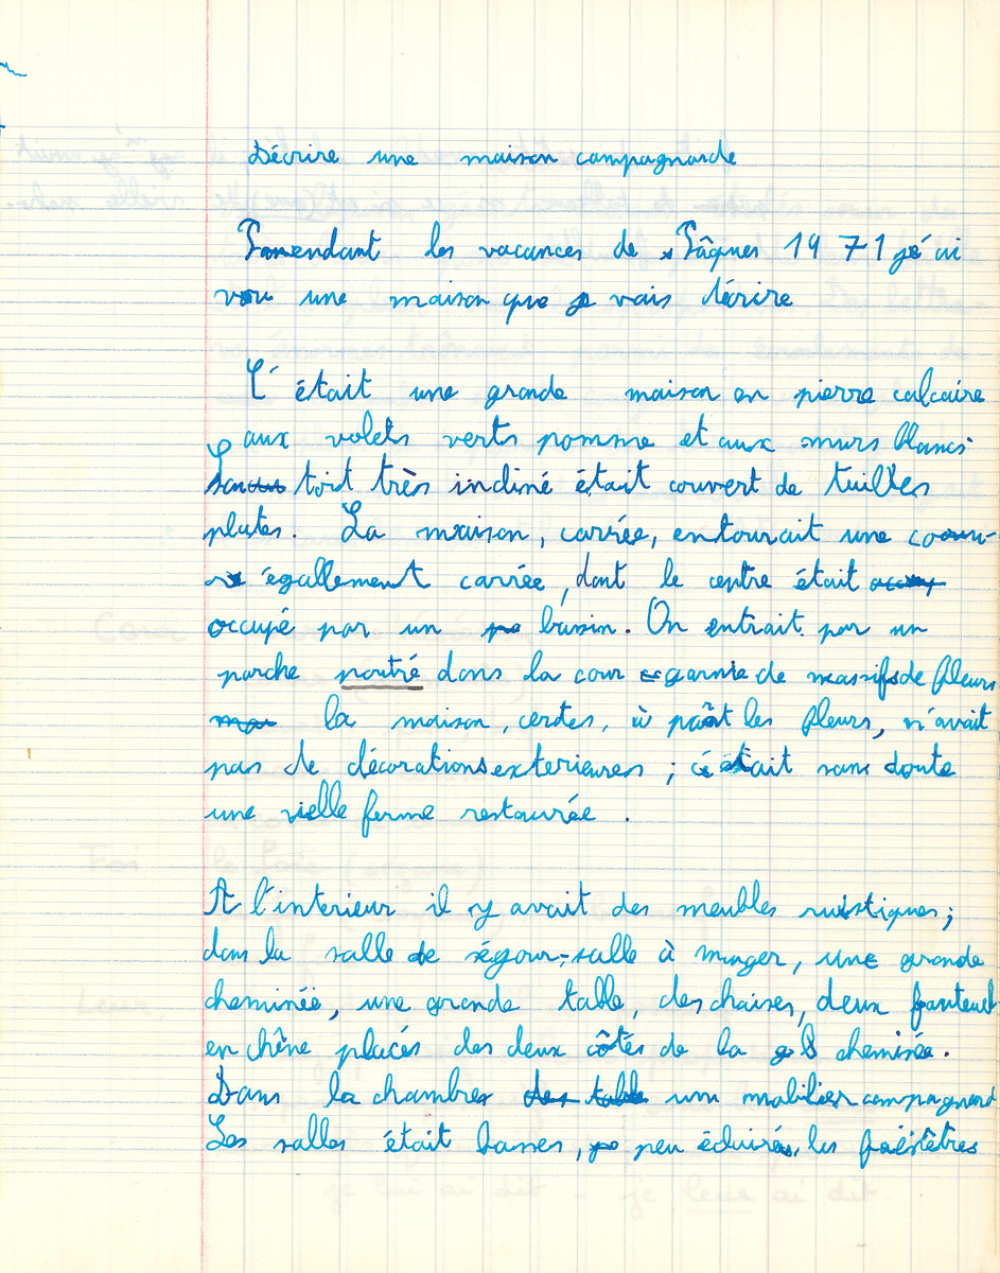 Décrire une maison campagnarde
Pomendant les vacances de Pâques 1971 j'ai
vu une maison que je vais décrire
C'était une grande maison en pierre calcaire
aux volets verts pomme et aux murs blancs
toit très incliné était couvert de tuilles
plates. La maison, carrée, entourait une cour
égallement carrée, dont le centre était
occupé par un bassin. On entrait par un
porche poutré dans la cour garnie de massifs de fleurs
la maison, certes, à part les fleurs, n'avait
pas de décorations exterieures ; c'était sans doute
une vielle ferme restaurée .
A l'interieur il y avait des meubles rustiques ;
dans la salle de ségour-salle à manger, une grande
cheminée, une grande table, des chaises, deux fauteuils
en chêne placés des deux côtés de la cheminée.
Dans la chambre un mobilier campagnard
Les salles était basses, peu éclairés, les fenêtres